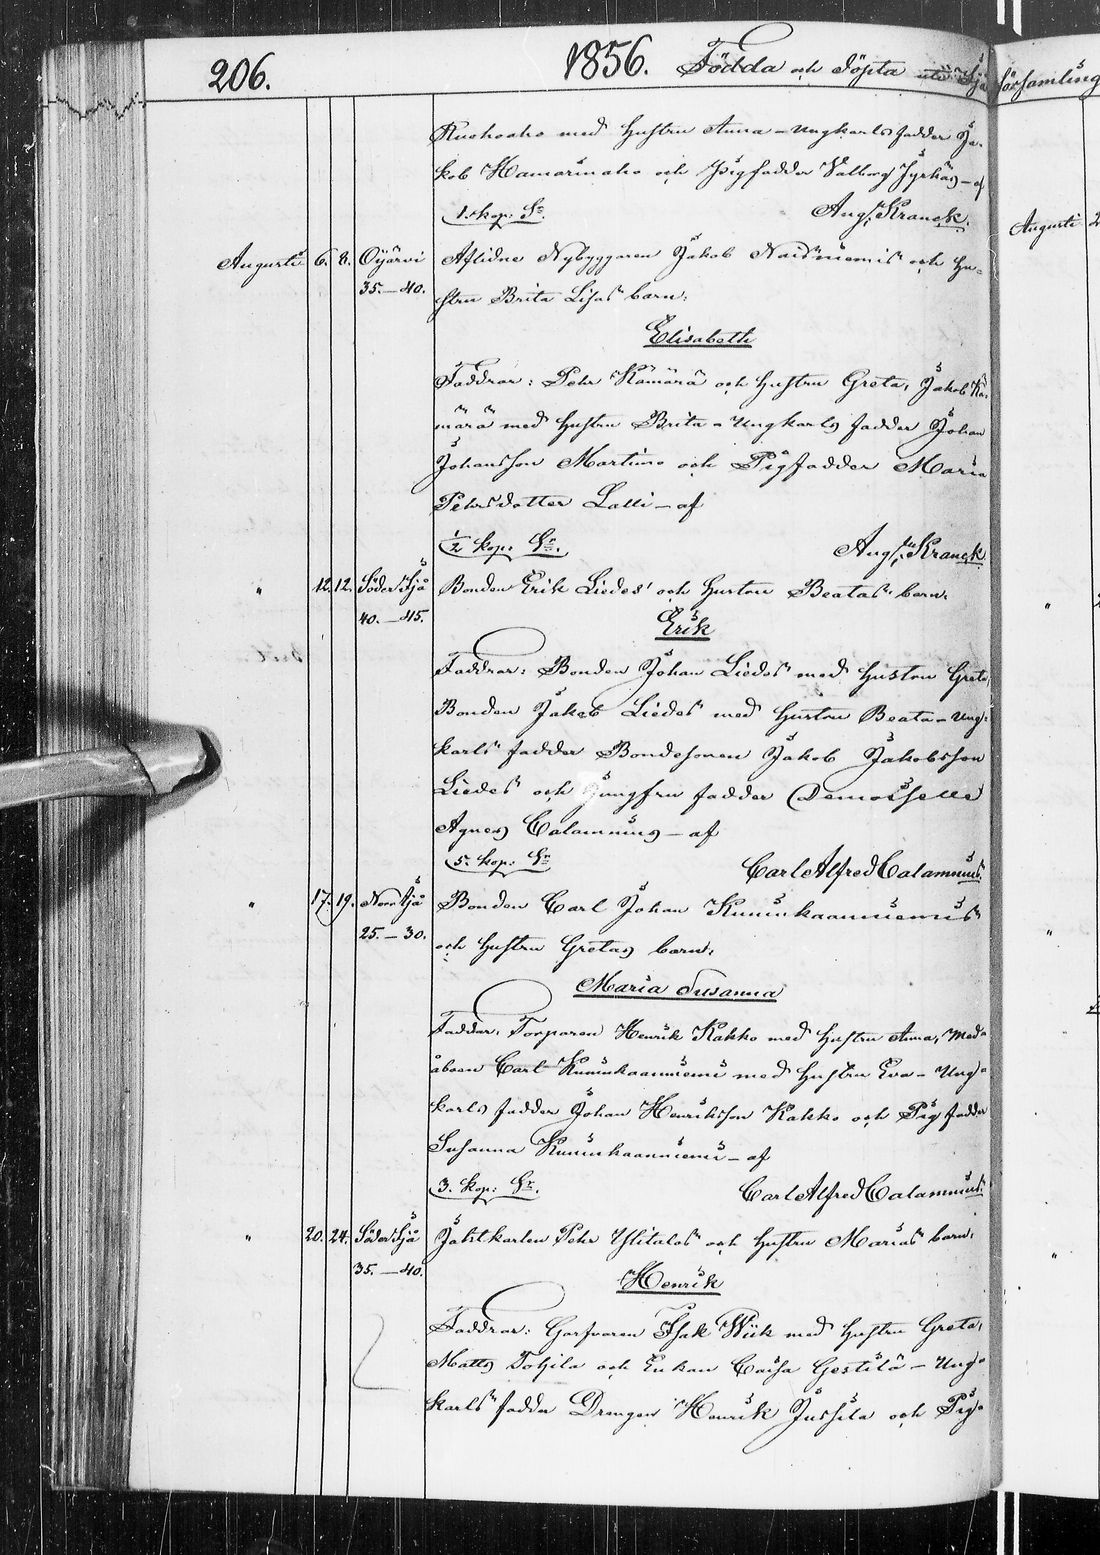 206.
1856. Födda och döpta
församling
med hustru Anna – Ungkarls fadder Ja-
kob Hamarinaho och Pigfadder Valborg Jyrkäs – af
1. kop: Sr.
Aug: Kranck.
Augusti 6. 8. Oijärvi Aflidne Nybyggaren Jakob Naisniemis och hu-
35.–40. stru Brita Lisas barn:
Elisabeth
Faddrar: Pehr Kämärä och hustru Greta, Jakob Kä-
märä med hustru Brita – Ungkarls fadder Johan
Johansson Martimo och Pigfadder Maria
Pehrsdotter Lalli – af
1/2 kop: Sr.
Aug: Kranck
" 12. 12. Söder Ijå Bonden Erik Liedes' och hustru Beatas barn:
40.–45.
Erik
Faddrar: Bonden Johan Liedes med hustru Greta,
Bonden Jakob Liedes med hustru Beata – Ung-
karls fadder Bondesonen Jakob Jakobsson
Liedes och Jungfru fadder Demoiselle
Agnes Calamnius – af
5. kop: Sr.
Carl Alfred Calamnius.
" 17. 19. Norr Ijå Bonden Carl Johan Kuninkaanniemis
25.–30. och hustru Gretas barn:
Maria Susanna
Faddrar: Torparen Henrik Kakko med hustru Anna, Med-
åboen Carl Kuninkaanniemi med hustru Eva – Ung-
karls fadder Johan Henriksson Kakko och Pig fadder
Susanna Kuninkaanniemi – af
3. kop: Sr.
Carl Alfred Calamnius.
" 20. 24. Söder Ijå Jaktkarlen Pehr Ylitalos och hustru Marias barn:
35.–40.
Henrik
Faddrar: Garfvaren Isak Wiik med hustru Greta,
Matts Tolsila och Enkan Caisa Gestilä – Ung-
karls fadder Drengen Henrik Jussila och Pig-
Augusti 2
"
"
"